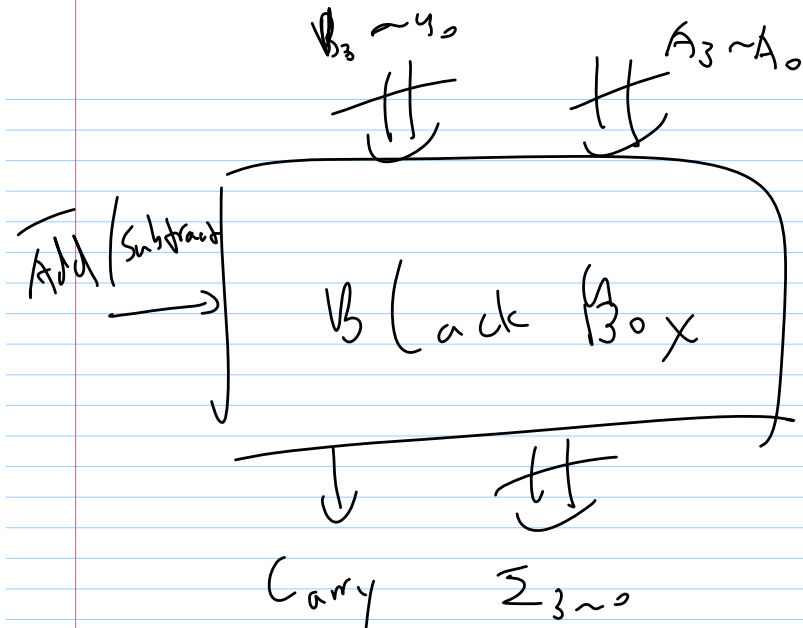 B₃ ~ 4₀ A₃ ~ A₀
A̅d̅d̅ / Subtract
Black Box
Carry Σ₃~₀